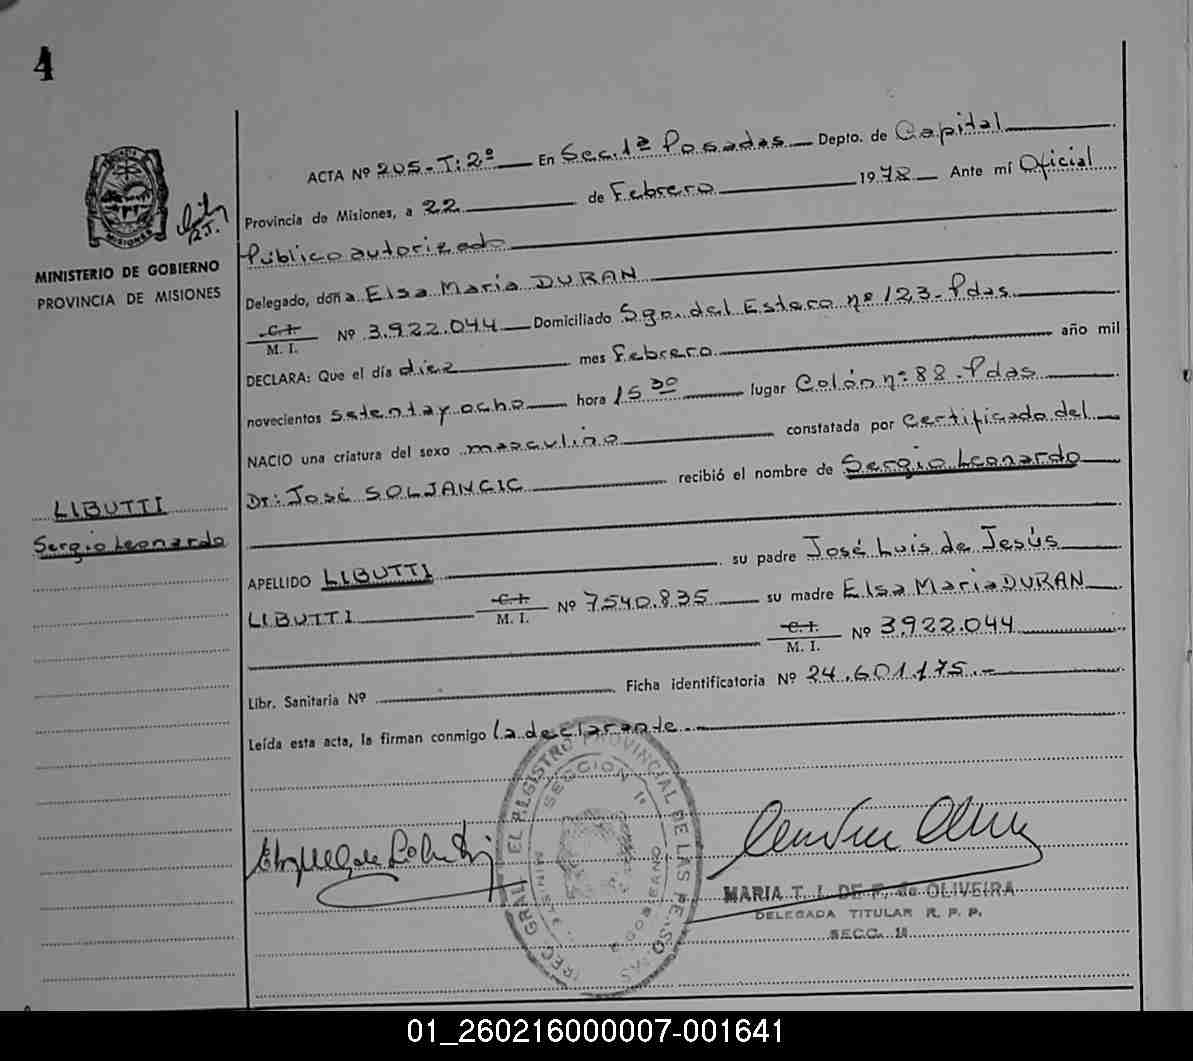 4
ACTA Nº 205-T: 2º En Secc. 1ª Posadas Depto. de Capital
Provincia de Misiones, a 22 de Febrero 1978 Ante mí Oficial
Público autorizado
Delegado, doña Elsa Maria DURAN
C.I. M. I. Nº 3.922.044 Domiciliado Sgo. del Estero nº 123 - Pdas
DECLARA: Que el día diez mes Febrero año mil
novecientos setenta y ocho hora 15 30 lugar Colón nº: 88 - Pdas
NACIO una criatura del sexo masculino constatada por certificado del
Dr: José SOLJANCIC recibió el nombre de Sergio Leonardo
APELLIDO LIBUTTI su padre José Luis de Jesús
LIBUTTI C.I. M. I. Nº 7.540.835 su madre Elsa Maria DURAN
C.I. M. I. Nº 3.922.044
Libr. Sanitaria Nº Ficha identificatoria Nº 24.601.175.-
Leída esta acta, la firman conmigo la declarante.-
MISIONES
MINISTERIO DE GOBIERNO
PROVINCIA DE MISIONES
LIBUTTI
Sergio Leonardo
REGISTRO PROVINCIAL DE LAS PERSONAS
SECCION 1ª
MARIA T. I. DE F. de OLIVEIRA
DELEGADA TITULAR R. P. P.
SECC. 1ª
01_260216000007-001641